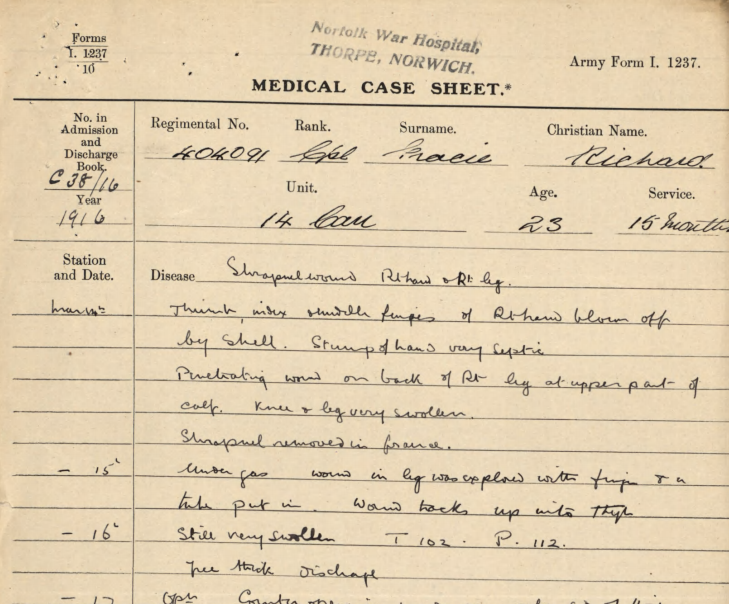 Forms
I. 1237
10
Norfolk War Hospital,
THORPE, NORWICH.
Army Form I. 1237.
MEDICAL CASE SHEET.*
No. in
Admission
and
Discharge
Book.
C 38/16
Year
1916
Regimental No. Rank. Surname. Christian Name.
404091 Cpl Gracie Richard
Unit. Age. Service.
14 Can 23 15 Months
Station
and Date.
Disease Shrapnel wound Rt hand & Rt leg.
Thumb, index & middle fingers of Rt hand blown off
by shell. Stump of hand very septic
Penetrating wound on back of Rt leg at upper part of
calf. Knee & leg very swollen.
Shrapnel removed in france.
- 15 Under gas wound in leg was explored with finger & a
tube put in. Wound tracks up into thigh
- 16 Still very swollen T 102. P. 112.
free thick discharge
- 17 Opn